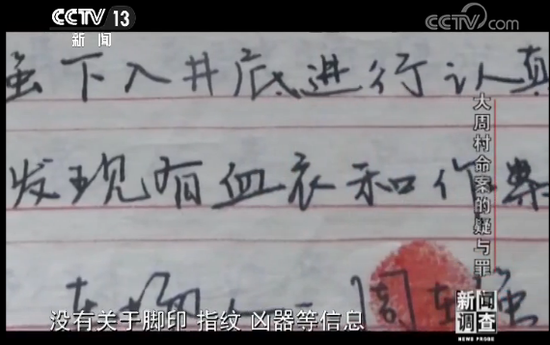 CCTV 13
新闻
CCTV.com
下入井底进行认真
发现有血衣和作案
大周村命案的疑与罪
没有关于脚印 指纹 凶器等信息
新闻
调查
NEWS PROBE